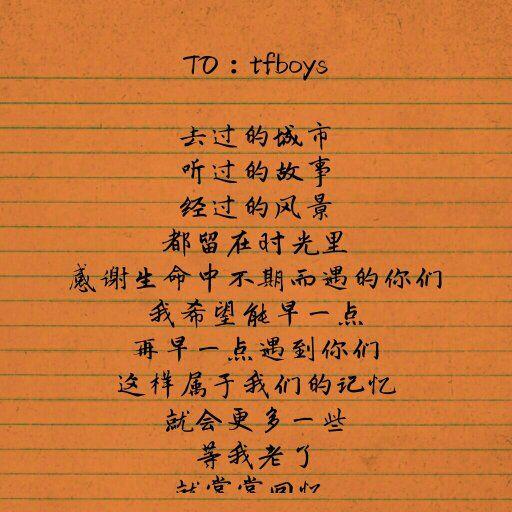 TO：tfboys
去过的城市
听过的故事
经过的风景
都留在时光里
感谢生命中不期而遇的你们
我希望能早一点
再早一点遇到你们
这样属于我们的记忆
就会更多一些
等我老了
就常常回忆